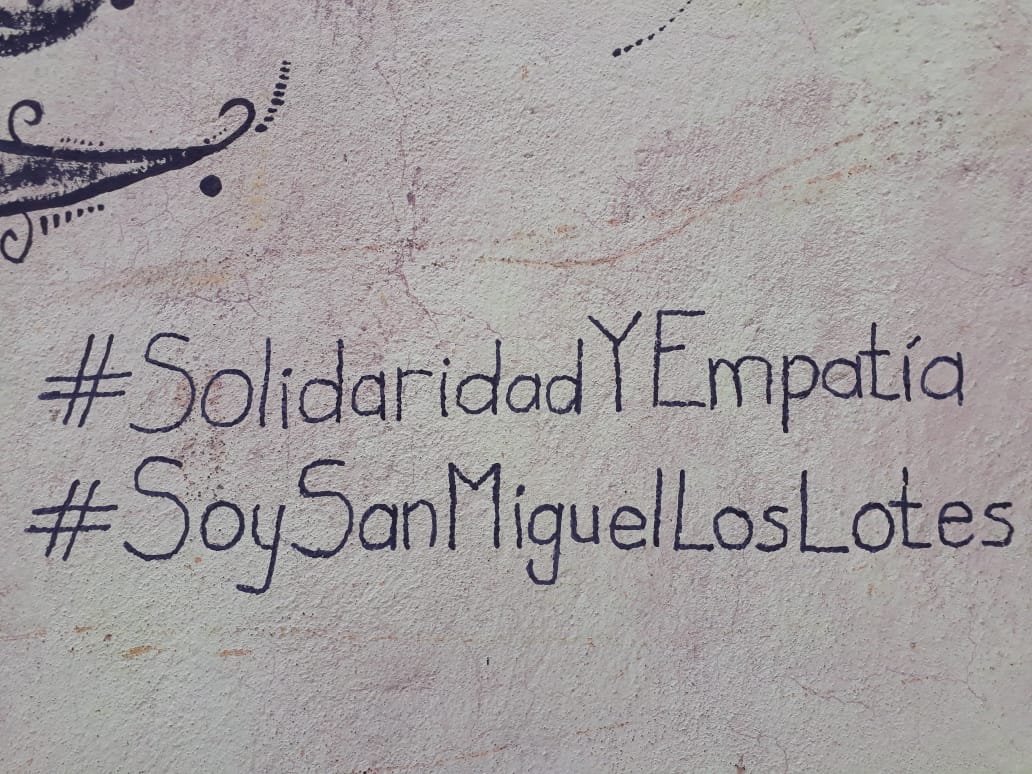 #SolidaridadYEmpatía
#SoySanMiguelLosLotes